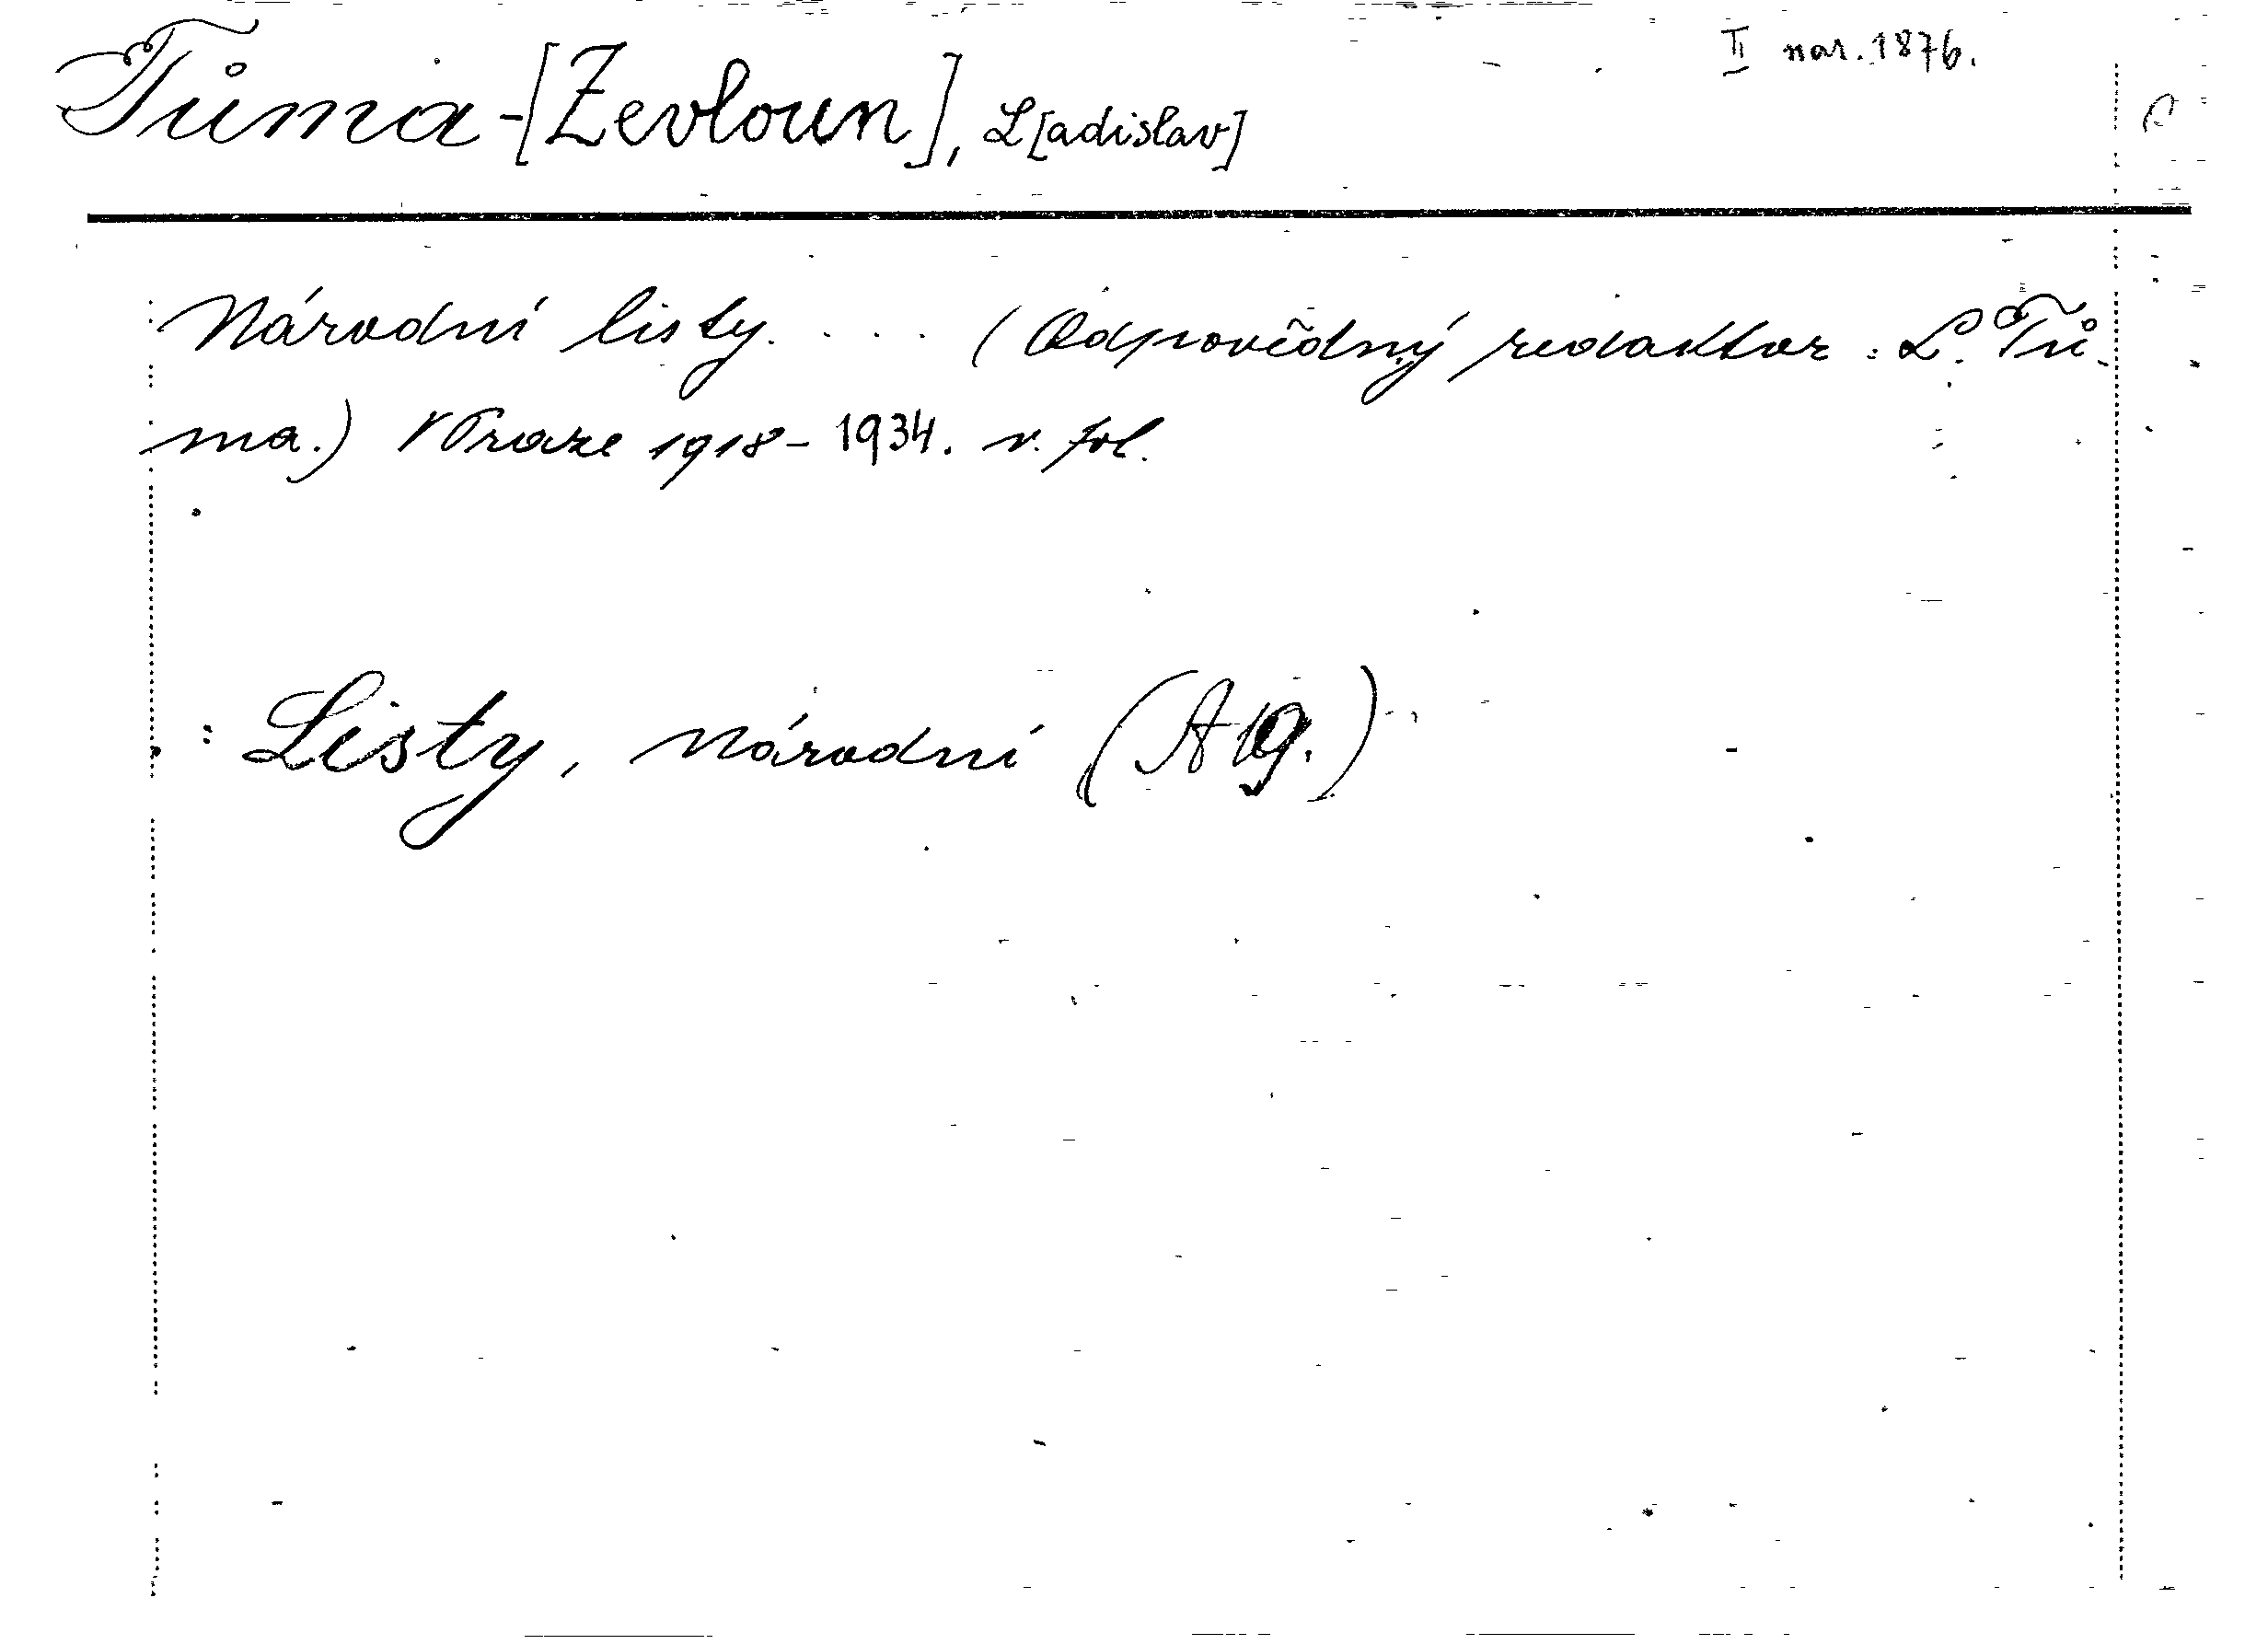 II nar. 1876.
Tůma-[Zevloun], L[adislav]
Národní listy. . . . (Odpovědný redaktor: L. Tů-
ma.) V Praze 1918-1934. v. fol.
: Listy, národní (A 19.)